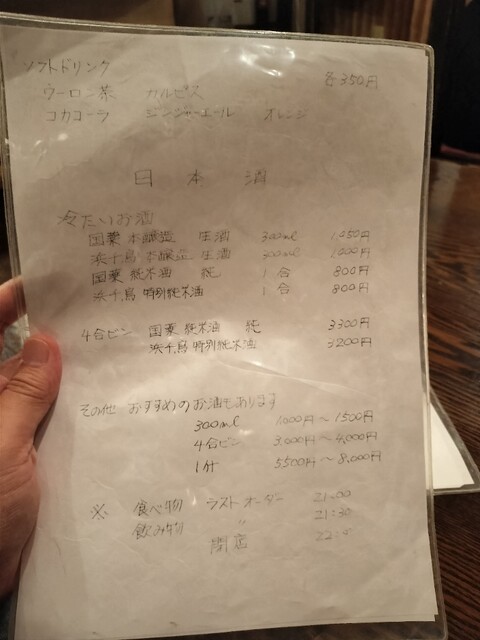 ソフトドリンク 各350円
ウーロン茶 カルピス
コカコーラ ジンジャーエール オレンジ
日本酒
冷たいお酒
国稀 本醸造 生酒 300ml 1,050円
浜千鳥 本醸造 生酒 300ml 1000円
国稀 純米酒 純 1合 800円
浜千鳥 特別純米酒 1合 800円
4合ビン 国稀 純米酒 純 3300円
浜千鳥 特別純米酒 3200円
その他 おすすめのお酒もあります
300ml 1,000円〜1500円
4合ビン 3,000円〜4,000円
1升 5500円〜8,000円
※ 食べ物 ラストオーダー 21:00
飲み物 〃 21:30
閉店